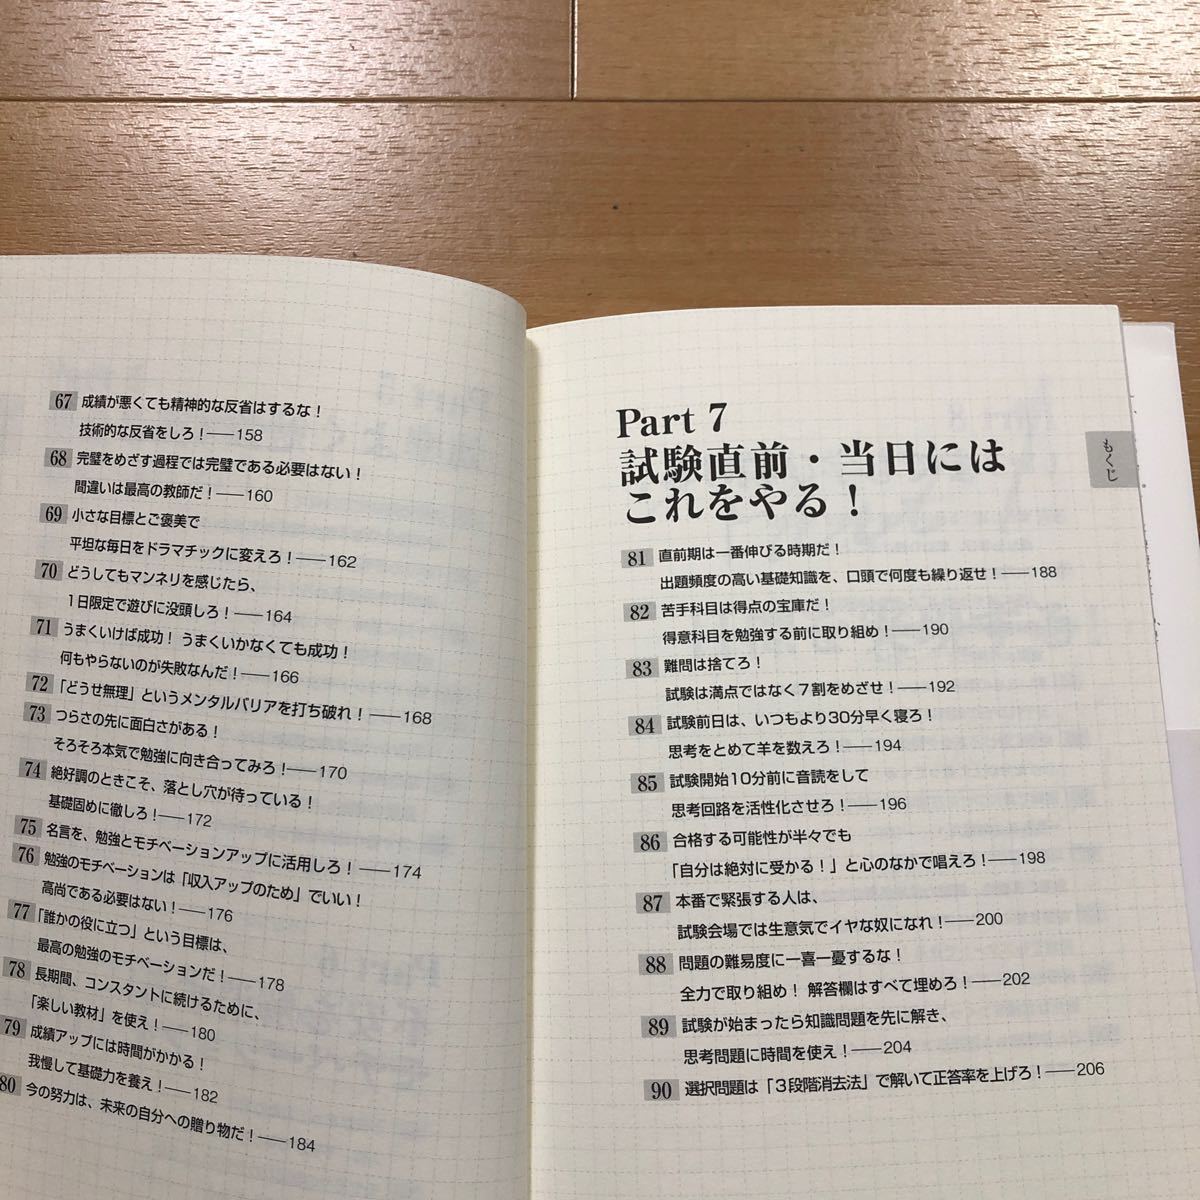 67 成績が悪くても精神的な反省はするな！
技術的な反省をしろ！──158
68 完璧をめざす過程では完璧である必要はない！
間違いは最高の教師だ！──160
69 小さな目標とご褒美で
平坦な毎日をドラマチックに変えろ！──162
70 どうしてもマンネリを感じたら、
1日限定で遊びに没頭しろ！──164
71 うまくいけば成功！ うまくいかなくても成功！
何もやらないのが失敗なんだ！──166
72 「どうせ無理」というメンタルバリアを打ち破れ！──168
73 つらさの先に面白さがある！
そろそろ本気で勉強に向き合ってみろ！──170
74 絶好調のときこそ、落とし穴が待っている！
基礎固めに徹しろ！──172
75 名言を、勉強とモチベーションアップに活用しろ！──174
76 勉強のモチベーションは「収入アップのため」でいい！
高尚である必要はない！──176
77 「誰かの役に立つ」という目標は、
最高の勉強のモチベーションだ！──178
78 長期間、コンスタントに続けるために、
「楽しい教材」を使え！──180
79 成績アップには時間がかかる！
我慢して基礎力を養え！──182
80 今の努力は、未来の自分への贈り物だ！──184
Part 7
試験直前・当日には
これをやる！
もくじ
81 直前期は一番伸びる時期だ！
出題頻度の高い基礎知識を、口頭で何度も繰り返せ！──188
82 苦手科目は得点の宝庫だ！
得意科目を勉強する前に取り組め！──190
83 難問は捨てろ！
試験は満点ではなく７割をめざせ！──192
84 試験前日は、いつもより30分早く寝ろ！
思考をとめて羊を数えろ！──194
85 試験開始10分前に音読をして
思考回路を活性化させろ！──196
86 合格する可能性が半々でも
「自分は絶対に受かる！」と心のなかで唱えろ！──198
87 本番で緊張する人は、
試験会場では生意気でイヤな奴になれ！──200
88 問題の難易度に一喜一憂するな！
全力で取り組め！ 解答欄はすべて埋めろ！──202
89 試験が始まったら知識問題を先に解き、
思考問題に時間を使え！──204
90 選択問題は「３段階消去法」で解いて正答率を上げろ！──206